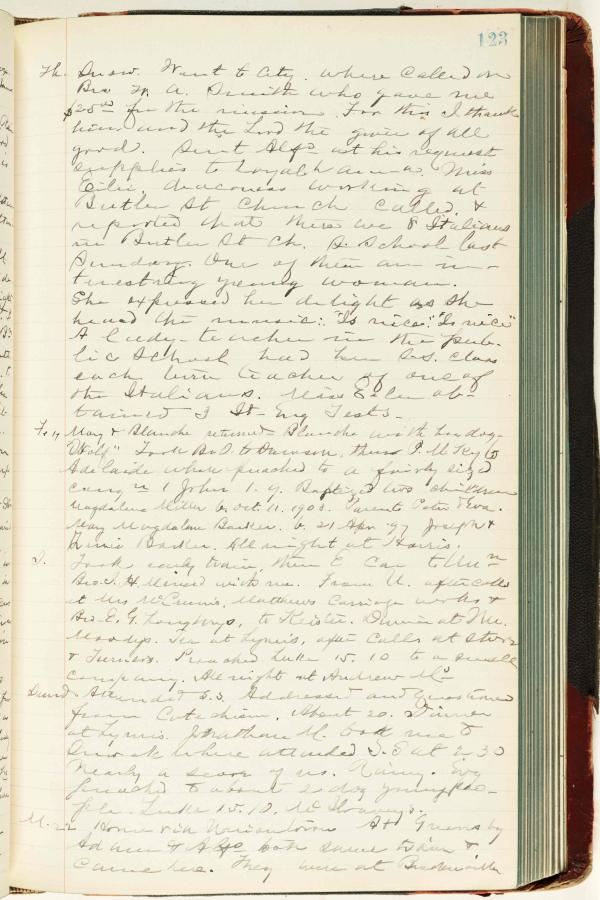 123
Th. Snow. Went to City. where called on
Bro W. A. Smith who gave me
$25 for the mission. For this I thank
him and the Lord the giver of all
good. Sent Alf. at his request
supplies to Loyalhanna. Miss
deaconess working at
Butler St Church called, &
reported that there are 8 Italians
in Butler St Ch. S. School last
Sunday. One of them an in-
teresting young woman.
She expressed her delight as she
heard the music: "Is nice." "Is nice"
A lady-teacher in the pub-
lic School had her S.S. class
each turn teacher of one of
the Italians. Miss ob-
tained 3 It-Eng Tests.
May & Blanche returned Blanche with her dog
Took B&O to Dawson, then
Adelaide where preached to a fairly sized
1 John 1. 9. Baptized two children
Magdalena Miller b. Oct. 11. 1900. Parents Peter & Eva.
Mary Magdalene Barker. b. 21 Apr. '97 Joseph &
Barker. All night at Harris.
S. Took early train, then E Car to
Bro. J. H with me. From U. after calls
at Mrs Matthews Carriage works &
Bro. E. G. to Keister. Dinner at
Tea at Lynns, after calls at store
& Turners. Preached Luke 15. 10 to a small
company. All night at Andrew
Sund. Attended S.S. Addressed and questioned
from Catechism. About 20. Dinner
at Lynns. Jonathan took me to
where attended S.S at 2.30
Nearly a score of us. Rainy. Evg
preached to about 2 doz young peo-
ple. Luke 15. 10.
M. 22 Home via Uniontown At Greens by
Adam & Alf both came &
came here. They were at